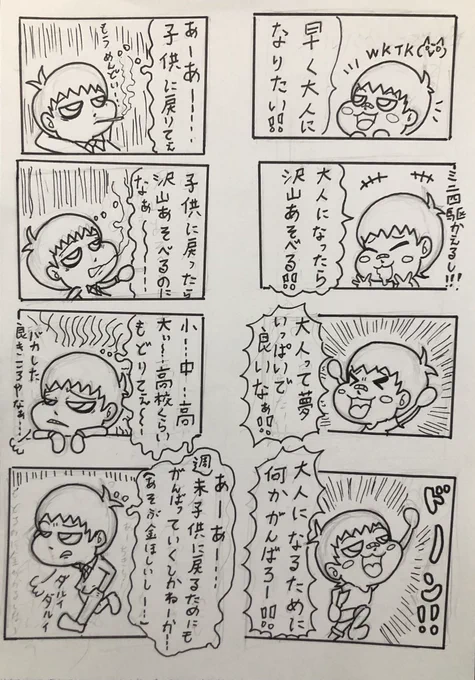 早く大人に
なりたい!!
wktk(^o^)
大人になったら
沢山あそべる!!
ミニ四駆かえるし!!!
大人って夢
いっぱいで
良いなぁ!!
大人になるために
何かがんばろー!!
ドーン!!
あーあー……
子供に戻りてぇ
もうめんでぃ…
子供に戻ったら
沢山あそべるのに
なぁ〜……
小!…中…高
大ぃ!…高校くらい
もどりてぇ〜〜
バカした
良きころやなぁ…
あーあー……
週末子供に戻るためにも
がんばっていくしかねーか…
あそぶ金ほしいし……
ダルイ
ダルイ